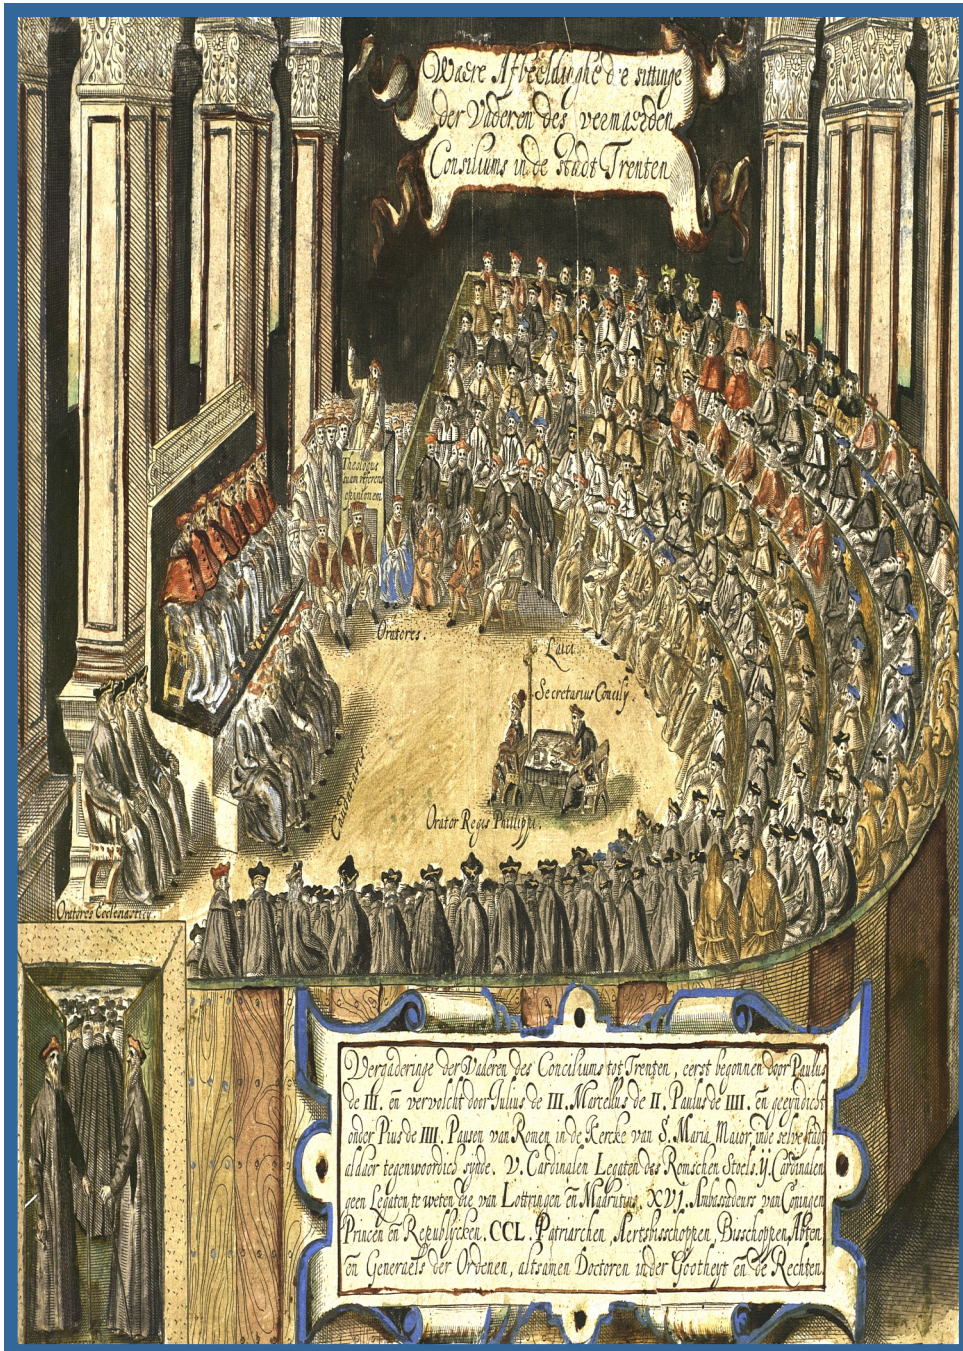 Waere Afbeeldinghe d'e sittinge
der Vaderen des vermaerden
Consiliums in de stadt Trenten
Theologus
suam referens
opinionem
Oratores.
Laici
Secretarius Concilij
Orator Regis Philippi.
Oratores Ecclesiastici.
Vergaderinge der Vaderen des Conciliums tot Trenten, eerst begonnen door Paulus
de III. en̄ vervolcht door Julius de III. Marcellus de II. Paulus de IIII. en̄ geeyndicht
onder Pius de IIII. Pausen van Romen in de Kercke van S. Maria Maior, inde selve stadt
aldaer tegenwoordich synde. V. Cardinalen Legaten des Romschen Stoels. ij. Cardinalen
geen Legaten te weten die van Lottringen en̄ Madrutius, XVJ. Ambassadeurs van Coningen
Princen en̄ Republijcken. CCL. Patriarchen, Aertsbisschoppen, Bisschoppen, Abten
en̄ Generaels der Ordenen, altsamen Doctoren inder Gootheyt en̄ de Rechten